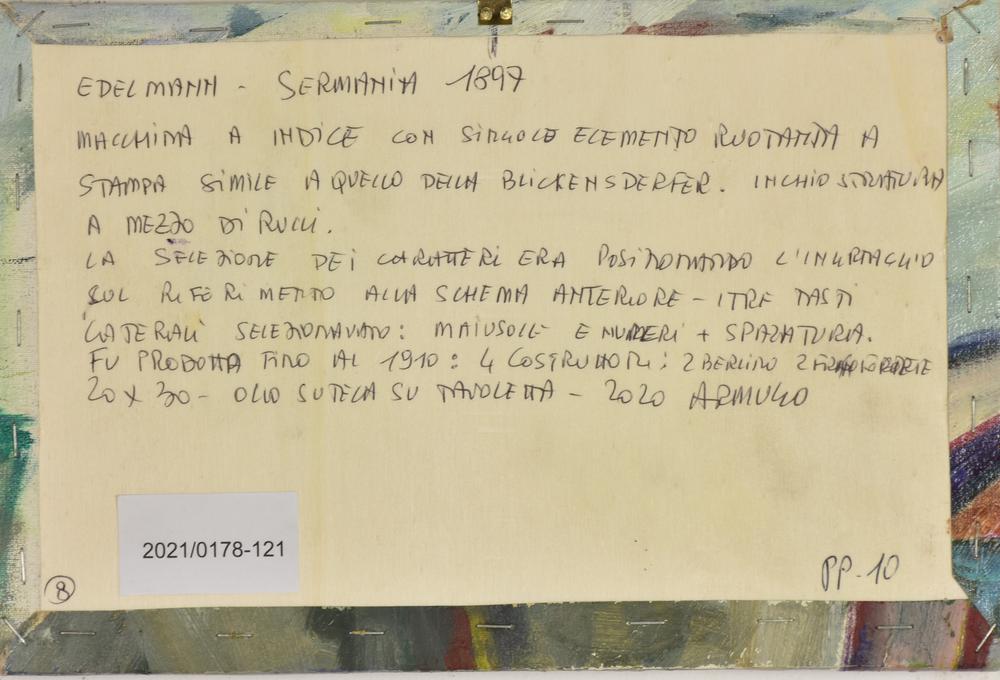 EDELMANN - GERMANIA 1897
MACCHINA A INDICE CON SINGOLO ELEMENTO RUOTANTA A
STAMPA SIMILE A QUELLO DELLA BLICKENSDERFER. INCHIOSTRATURA
A MEZZO DI RULLI.
LA SELEZIONE DEI CARATTERI ERA POSIZIONANDO L'INGRANAGGIO
SUL RIFERIMENTO ALLA SCHEMA ANTERIORE - I TRE TASTI
LATERALI SELEZIONAVANO: MAIUSOLE E NUMERI + SPAZIATURA.
FU PRODOTTA FINO AL 1910: 4 COSTRUTTORI: 2 BERLINO 2 FRANCOFORTE
20 X 30 - OLIO SU TELA SU TAVOLETTA - 2020 ARMULO
2021/0178-121
8
PP. 10